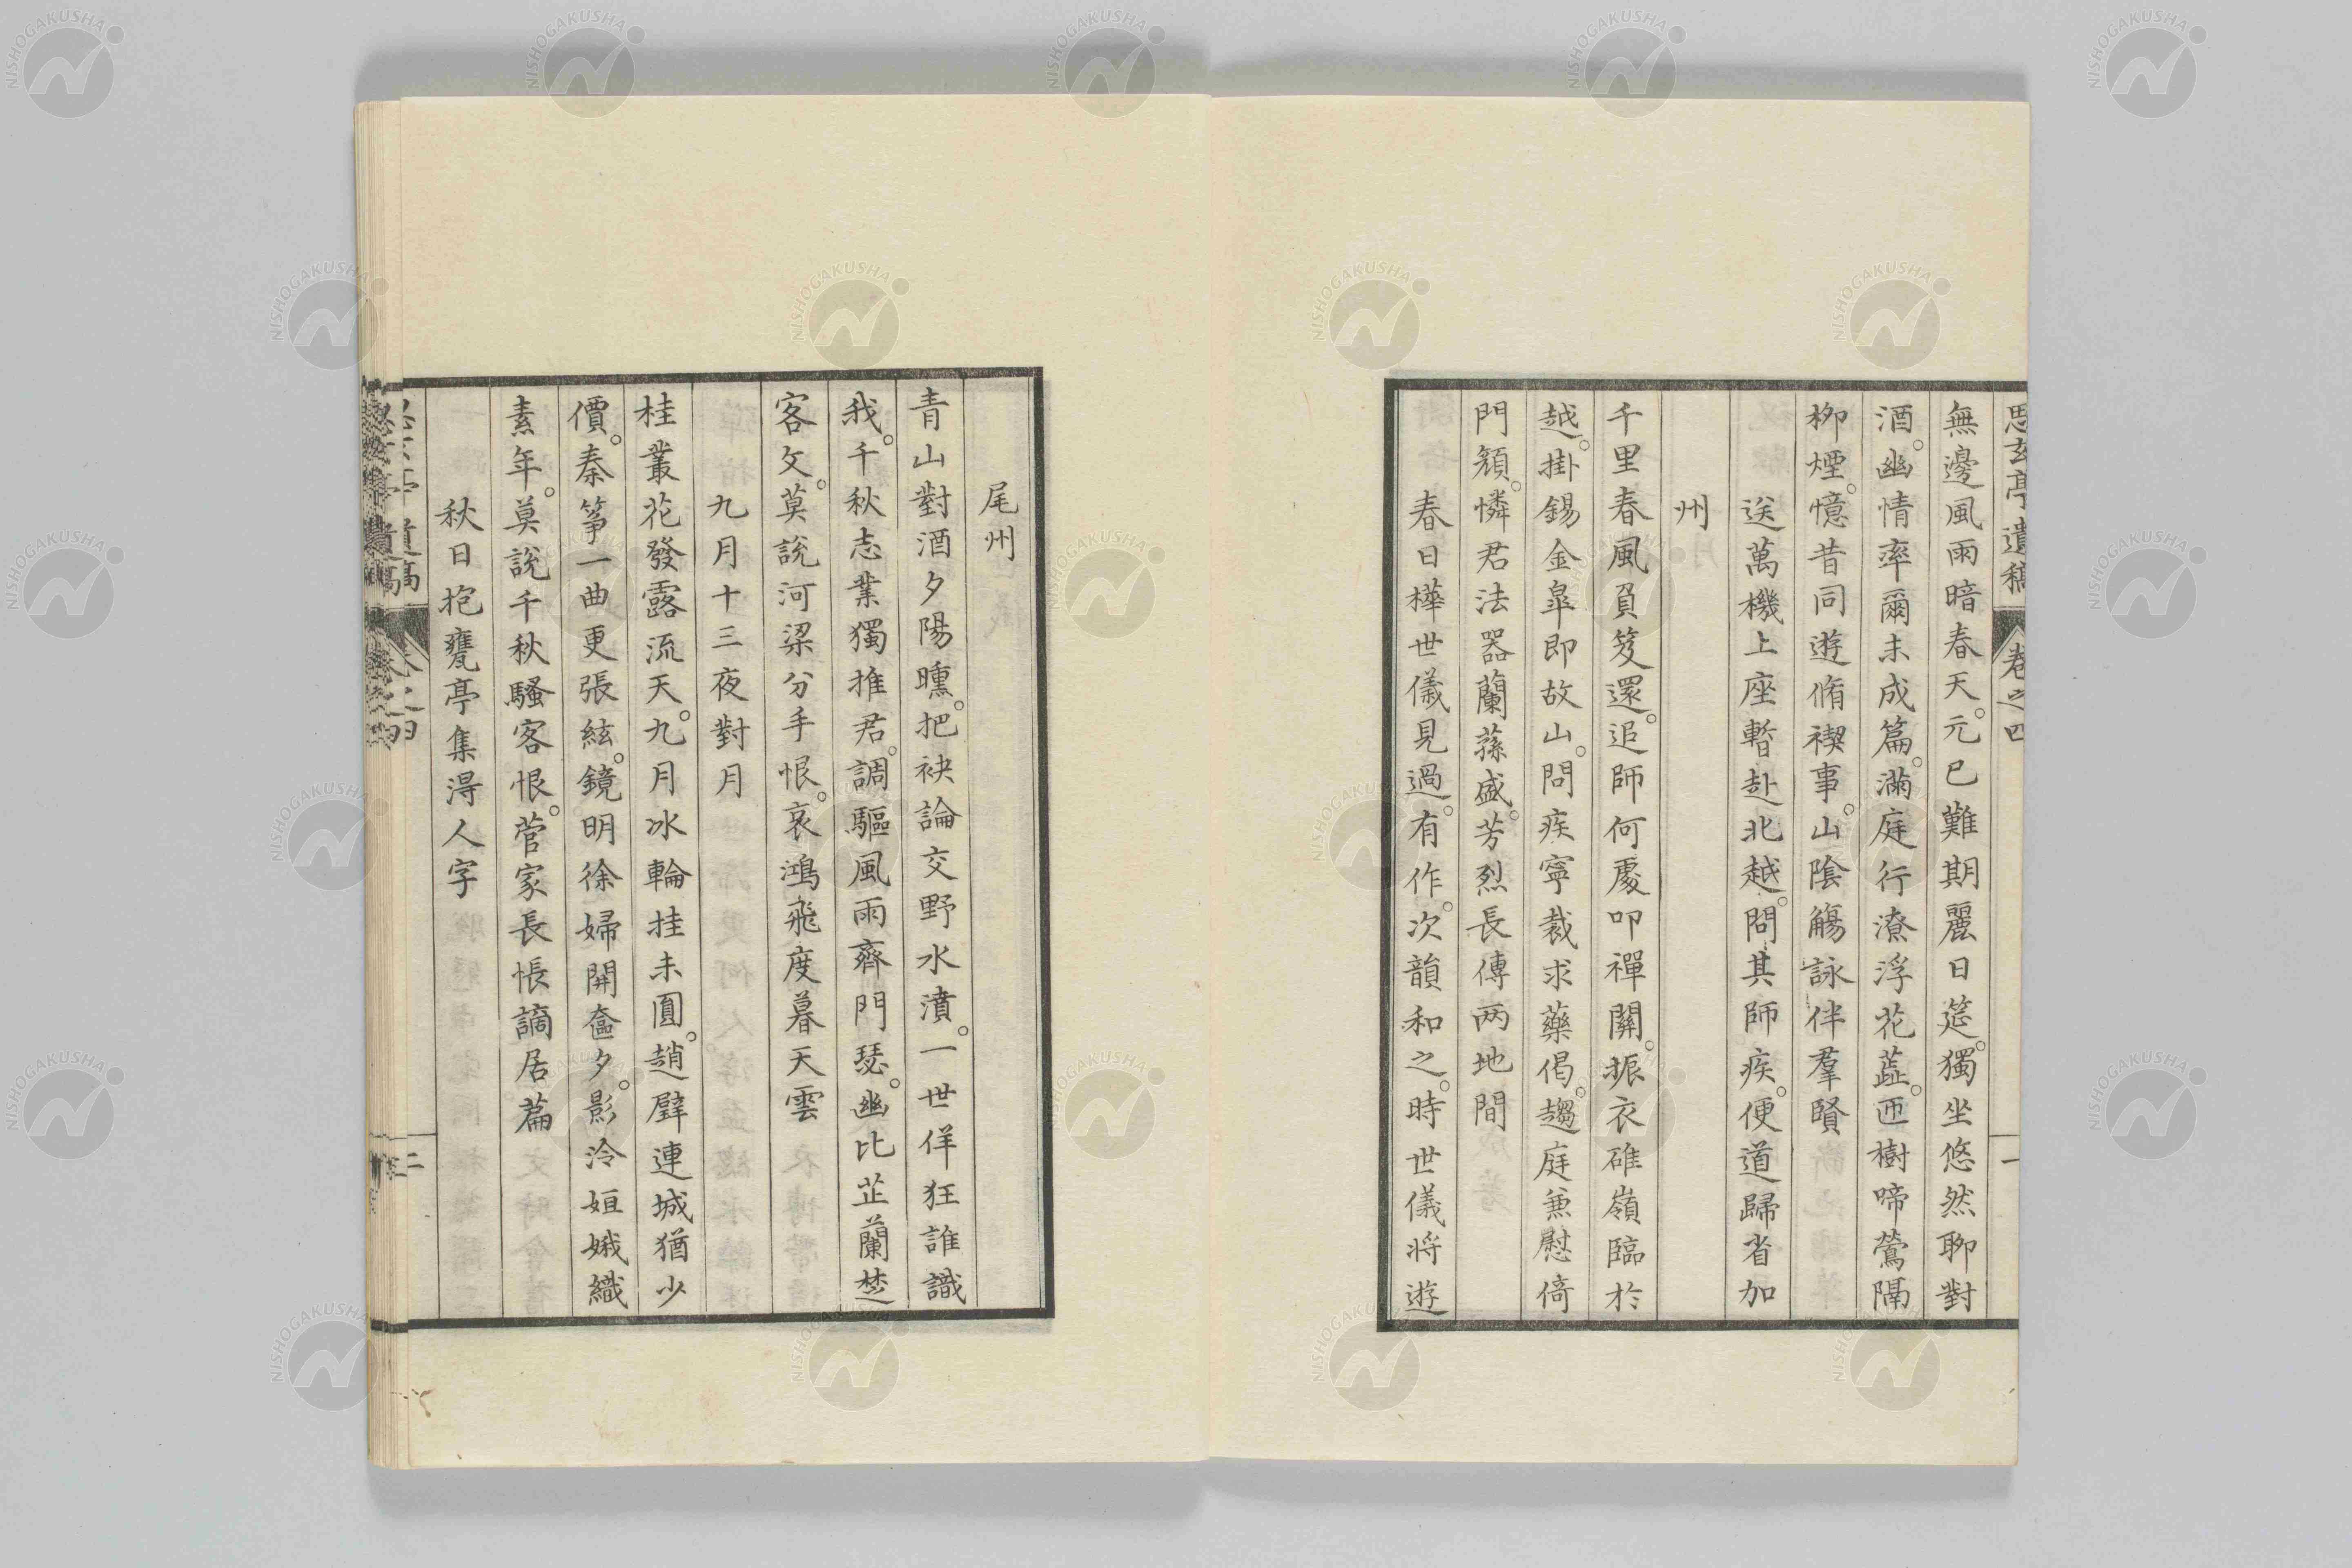 思玄亭遺稿 卷之四 一
無邊風雨暗春天。元巳難期麗日筵。獨坐悠然聊對
酒。幽情率爾未成篇。滿庭行潦浮花蕋。匝樹啼鶯隔
柳煙。憶昔同遊脩禊事。山陰觴詠伴羣賢
送萬機上座暫赴北越。問其師疾。便道歸省加
州
千里春風負笈還。追師何處叩禪關。振衣碓嶺臨於
越。掛錫金皐即故山。問疾寧裁求藥偈。趨庭兼慰倚
門顏。憐君法器蘭蓀盛。芳烈長傳两地間
春日樺世儀見過。有作。次韻和之。時世儀将遊
尾州
青山對酒夕陽曛。把袂論交野水濆。一世佯狂誰識
我。千秋志業獨推君。調驅風雨齊門瑟。幽比芷蘭楚
客文。莫說河梁分手恨。哀鴻飛度暮天雲
九月十三夜對月
桂叢花發露流天。九月冰輪挂未圓。趙璧連城猶少
價。秦箏一曲更張絃。鏡明徐婦開奩夕。影冷姮娥織
素年。莫說千秋騷客恨。菅家長悵謫居篇
秋日抱甕亭集得人字
卷之四 二
NISHOGAKUSHA